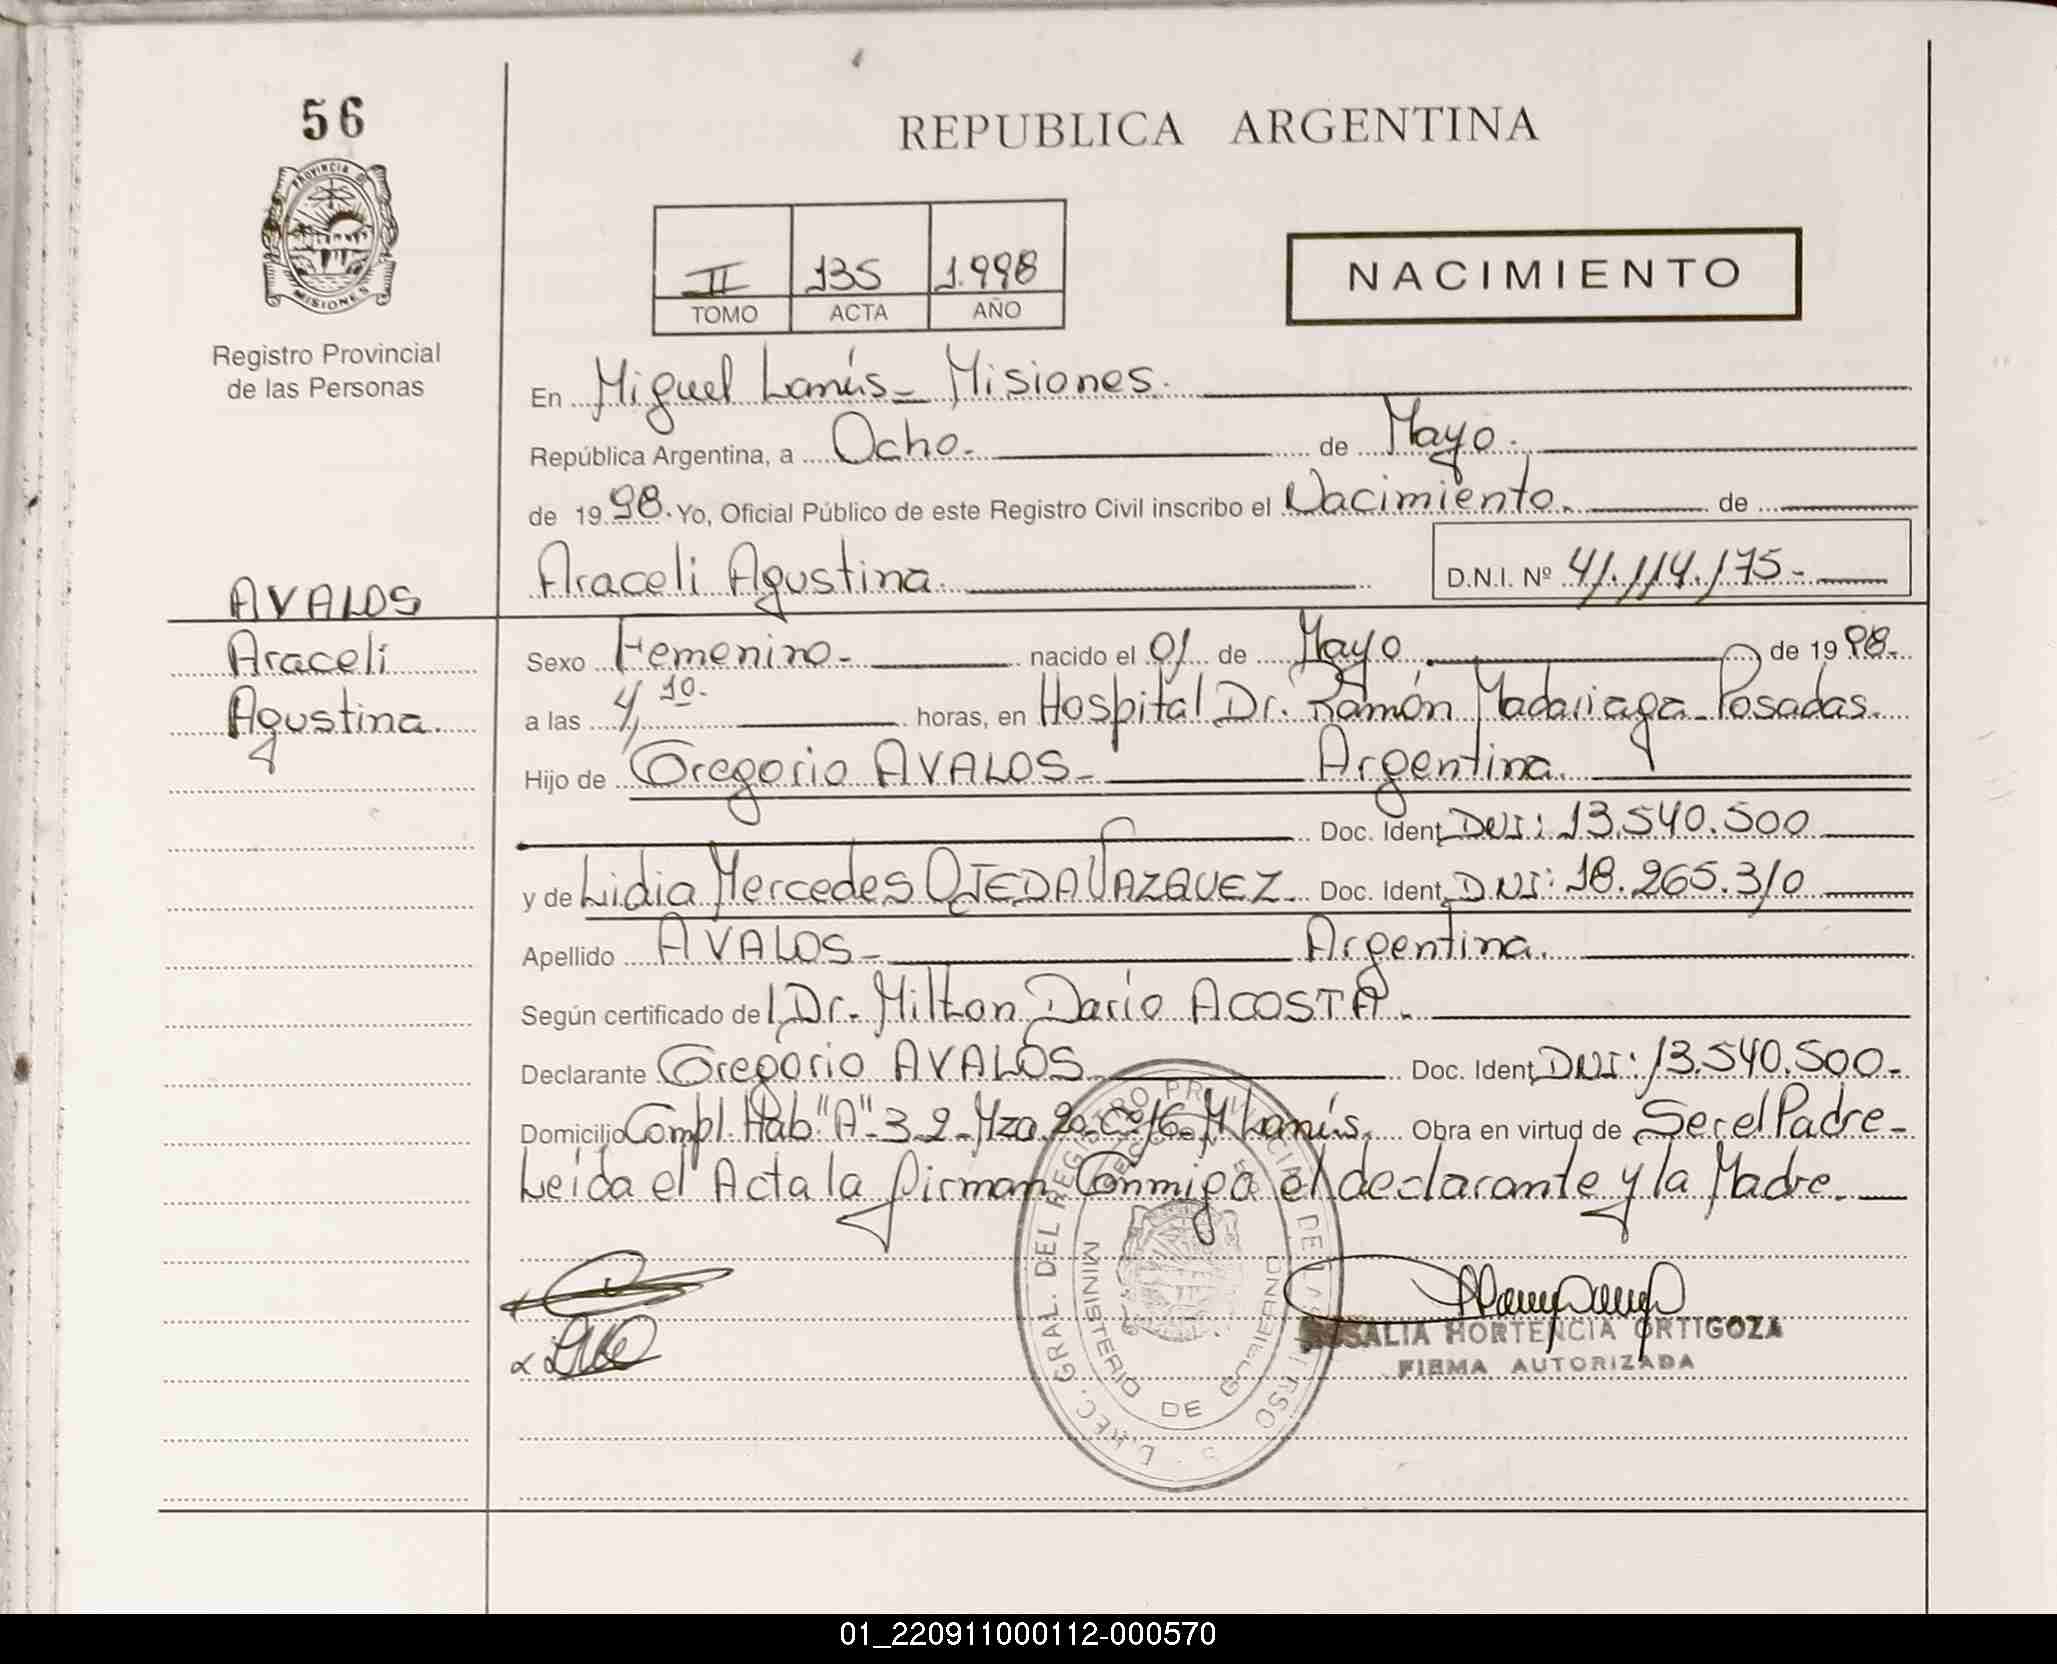 56
PROVINCIA DE
MISIONES
Registro Provincial
de las Personas
REPUBLICA ARGENTINA
II 135 1.998
TOMO ACTA AÑO
NACIMIENTO
En Miguel Lanús - Misiones.
República Argentina, a Ocho. de Mayo.
de 1998. Yo, Oficial Público de este Registro Civil inscribo el Nacimiento. de
Araceli Agustina. D.N.I. Nº 41.114.175-
AVALOS
Araceli
Agustina.
Sexo Femenino- nacido el 01 de Mayo de 1998-
a las 4,10- horas, en Hospital Dr. Ramón Madariaga - Posadas.
Hijo de Gregorio AVALOS- Argentina.
Doc. Ident. DNI: 13.540.500
y de Lidia Mercedes OJEDA VAZQUEZ. Doc. Ident. DNI: 18.265.310
Apellido AVALOS- Argentina.
Según certificado del Dr. Milton Darío ACOSTA.
Declarante Gregorio AVALOS Doc. Ident. DNI: 13.540.500-
Domicilio Compl. Hab "A"-3.2-Mza. 20-Cº16-M Lanús. Obra en virtud de Ser el Padre-
Leída el Acta la firman Conmigo el declarante y la Madre.
GRAL. DEL REGISTRO PROVINCIAL DE LAS
MINISTERIO DE GOBIERNO
ROSALIA HORTENCIA ORTIGOZA
FIRMA AUTORIZADA
01_220911000112-000570